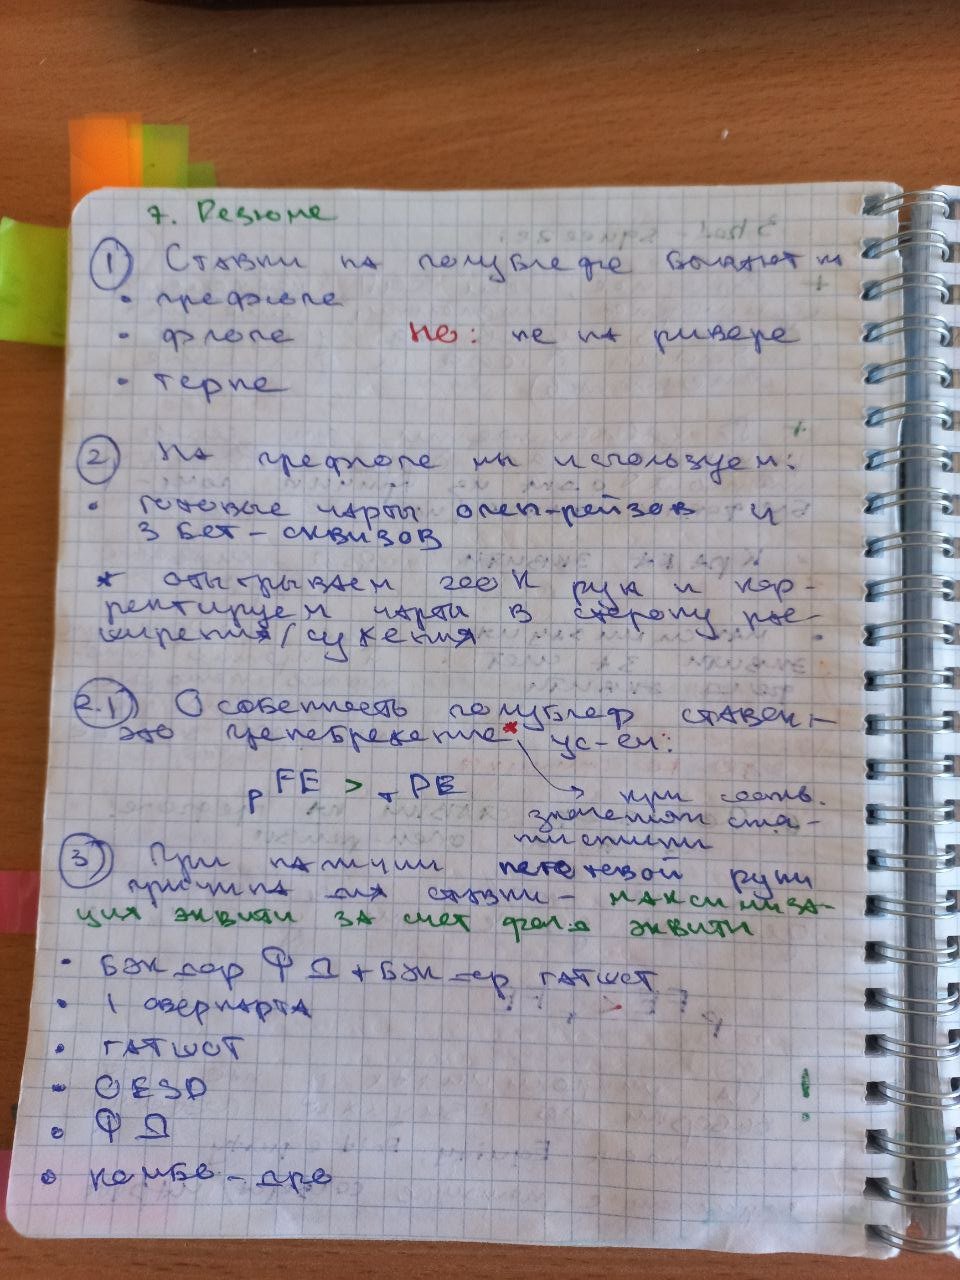 7. Резюме
① Ставки на полублефе бывают на
• префлопе
• флопе НО: не на ривере
• терне
② На префлопе мы используем:
• готовые чарты опен-рейзов и
3 бет-сквизов
* отыгрываем 200К рук и кор-
ректируем чарты в сторону рас-
ширения/сужения
2.1 Особенность полублеф ставек -
это пренебрежение* ус-ем:
рFE > тPE
→ при соотв.
значениях ста-
тистики
③ При наличии неготовой руки
причина для ставки - максимиза-
ция эквити за счет фолд эквити
• Бэкдор ФД + Бэк-ор гатшот
• 1 оверкарта
• гатшот
• OESD
!
• ФД
• комбо-дро